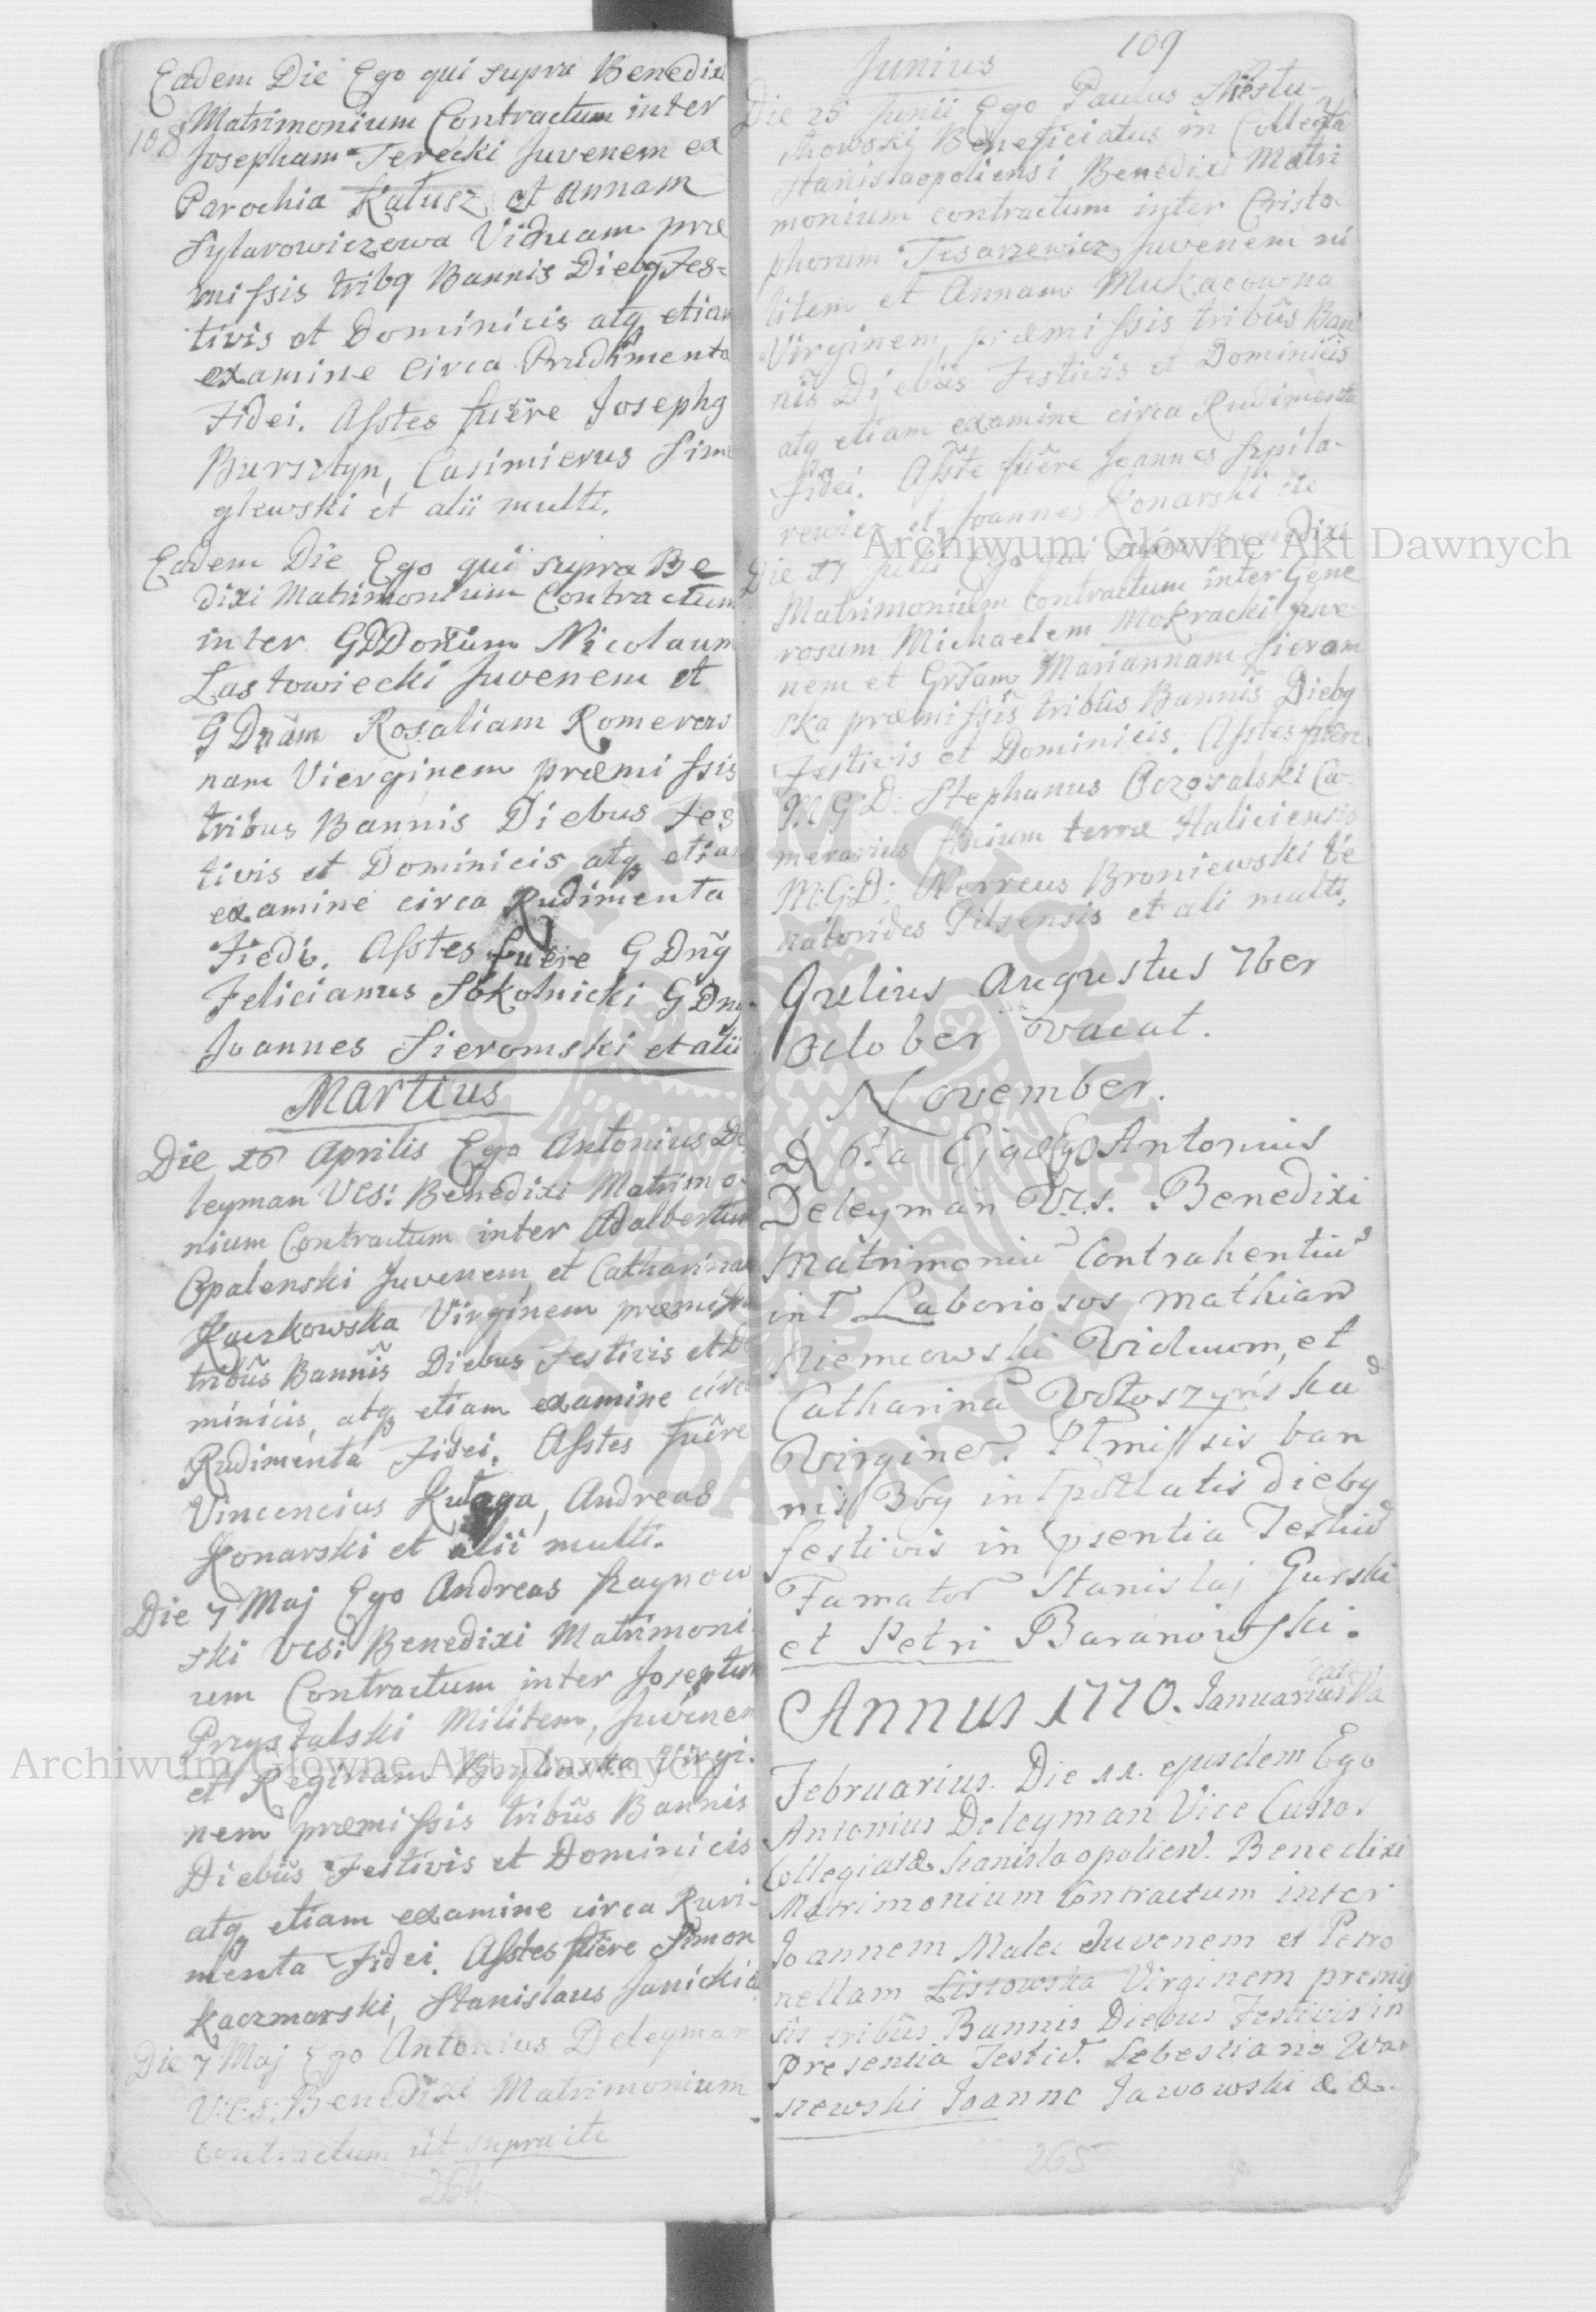 Eadem Die Ego qui supra Benedixi
108 Matrimonium Contractum inter
Josepham Terecki Juvenem ex
Parochia Katusz et Annam
Sylarowiczowa Viduam præ
missis tribq Bannis Diebq Fes=
tivis et Dominicis atq etiam
examine Circa Rudimenta
Fidei. Asstes fuêre Josephq
Bursztyn, Casimierus Sim
glewski et alii multi.
Eadem Die Ego qui supra Be
dixi Matrimonium Contractum
inter GDDonum Nicolaum
Lastowiecki Juvenem et
G Dnam Rosaliam Romerow
nam Vierginem præmissis
tribus Bannis Diebus Fes
tivis et Dominicis atq etiam
examine circa Rudimenta
Fiedi. Asstes fuêre G Dnq
Felicianus Sokolnicki G Dnq
Joannes Sieromski et alii
Martius
Die 16 Aprilis Ego Antonius De
leyman VCS: Benedixi Matrimo-
nium Contractum inter Adalbertum
Opalenski Juvenem et Catharinam
Kaczkowska Virginem præmissis
tribûs Bannis Diebus Festivis et Do
minicis, atq etiam examine circa
Rudimenta Fidei, Asstes fuêre
Vincencius Andreas
Konarski et alii multi.
Die 7 Maj Ego Andreas Raynow
ski VCS: Benedixi Matrimoni
um Contractum inter Josephum
Przystalski Militem, Juvenem
et Reginam Virgi-
nem præmissis tribûs Bannis
Diebûs Festivis et Dominicis
atq etiam examine circa Ruvi-
menta Fidei. Asstes fuêre Simon
Kaczmarski, Stanislaus Janicki
Die 7 Maj Ego Antonius Deleyman
V:C:S: Benedixi Matrimonium
Contractum ut supra etc
264
109
Junius
Die 25 Junii Ego Paulus Nistu-
chowski Beneficiatus in Collegta
Stanislaopoliensi Benedixi Matri
monium contractum inter Cristo-
phorum Tesarzewicz Juvenem mi
litem et Annam Mukacowna
Virginem, præmissis tribûs Ban
nis Diebûs Festivis et Dominicis
atq etiam examine circa Rudimenta
Fidei. Asste fuêre Joannes Szpila-
rewicz et Joannes Konarski etc
Die 17 Julii Ego qui supra Benedixi
Matrimonium contractum inter Gene
rosum Michaelem Mokracki Juve-
nem et Grsam Mariannam Sierom
ska præmissis tribûs Bannis Diebq
Festivis et Dominicis. Asstes fuêre
M: G: D: Stephanus Oczosalski Ca-
merarius terræ Haliciensis
M:G:D: Nerreus Broniewski Ve
natorides Pilsensis et ali multi.
Gulius Augustus 7ber
October vacat.
November.
D 6ta Ejqd Ego Antonius
Deleyman V.C.S. Benedixi
Matrimoniu Contrahentiu
int Laboriosos Mathiam
Niemcowski Viduum, et
Catharina Wołoszyńska
Virginem. Pmissis ban
nis 3bq intpollatis diebq
festivis in psentia Testiu
Famator Stanislaj Gurski
et Petri Baranowski.
Annus 1770. Januarius Va
cat
Februarius. Die 11. ejusdem Ego
Antonius Deleyman Vice Custos
Collegiatæ Stanislaopolien. Benedixi
Matrimonium Contractum inter
Joannem Malec Juvenem et Petro
nellam Listowska Virginem premis
sis tribûs Bannis Diebus Festivis in
Presentia Testiu. Sebestiano Wa-
szewski Joanne Jawowski & &.
265
Archiwum Główne Akt Dawnych
Archiwum Główne Akt Dawnych